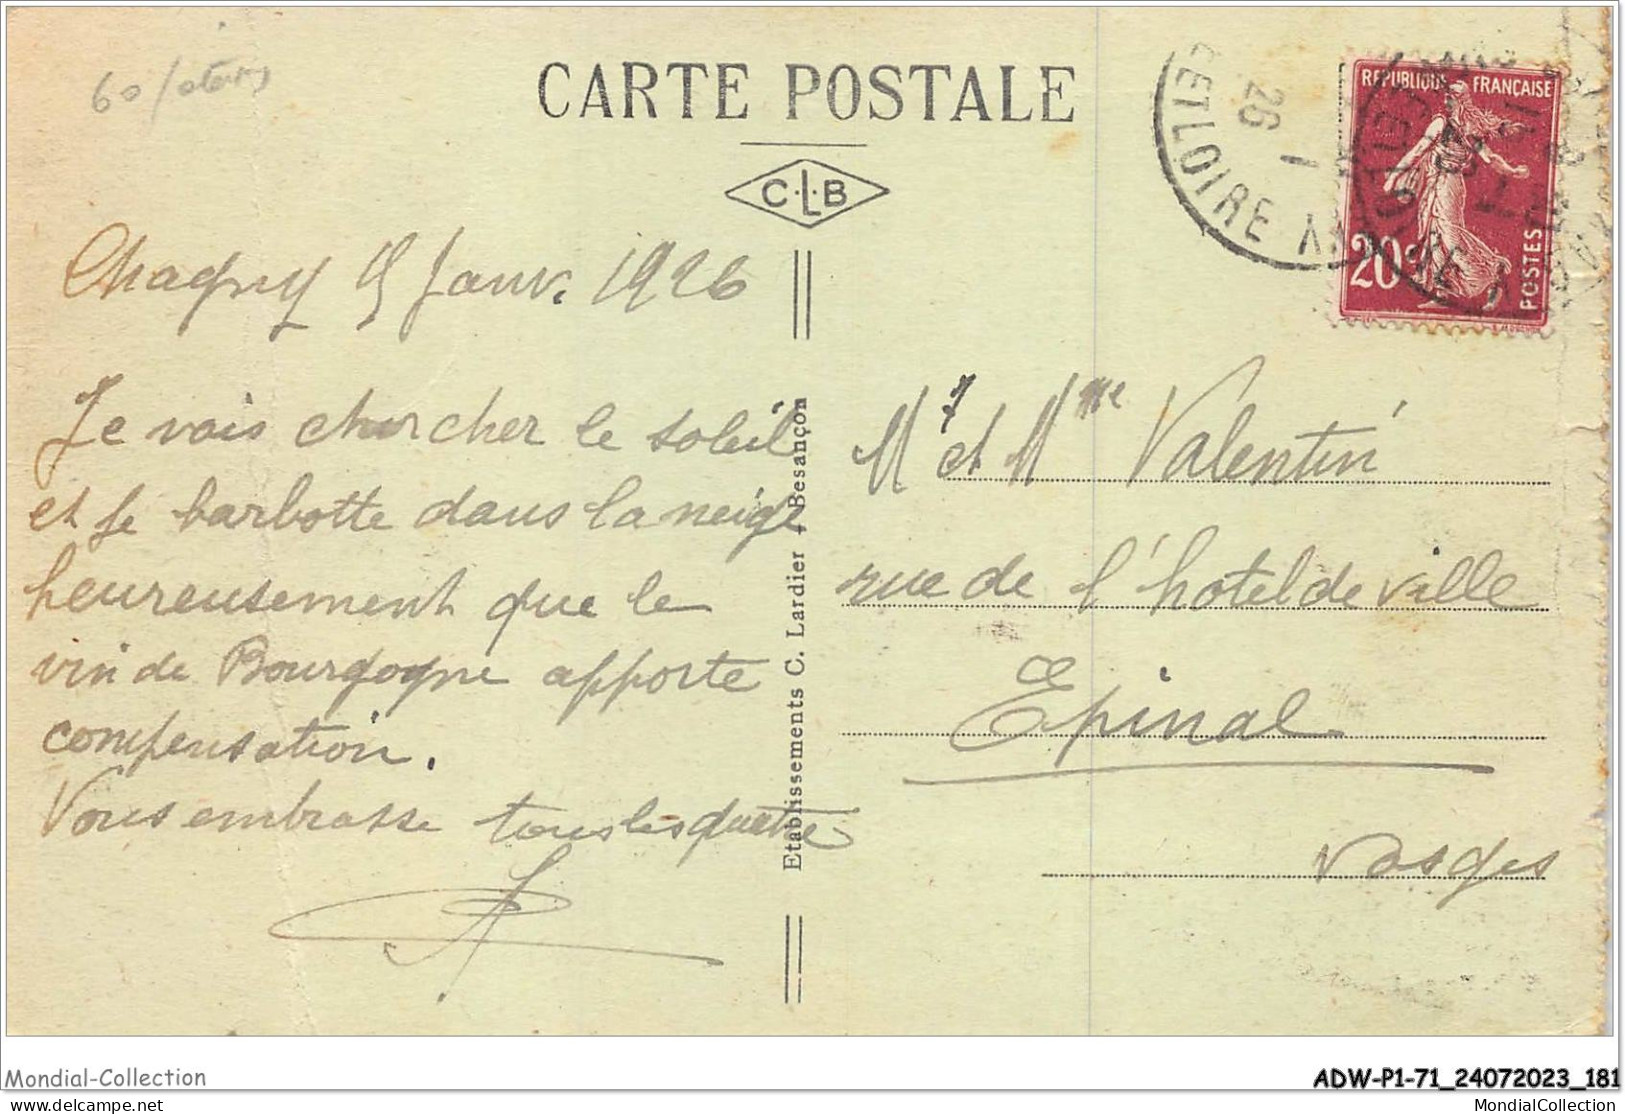 CARTE POSTALE
C·L·B
ET LOIRE
26
1
REPUBLIQUE FRANÇAISE
20c
POSTES
Chagny 5 Janv. 1926
Je vais chercher le soleil
et je barbotte dans la neige
heureusement que le
vin de Bourgogne apporte
compensation.
Vous embrasse tous les quatre
Etablissements C. Lardier - Besançon
Mr et Mme Valentin
rue de l'hotel de ville
Epinal
Vosges
Mondial-Collection
ADW-P1-71_24072023_181
mondial-collection.delcampe.net
MondialCollection